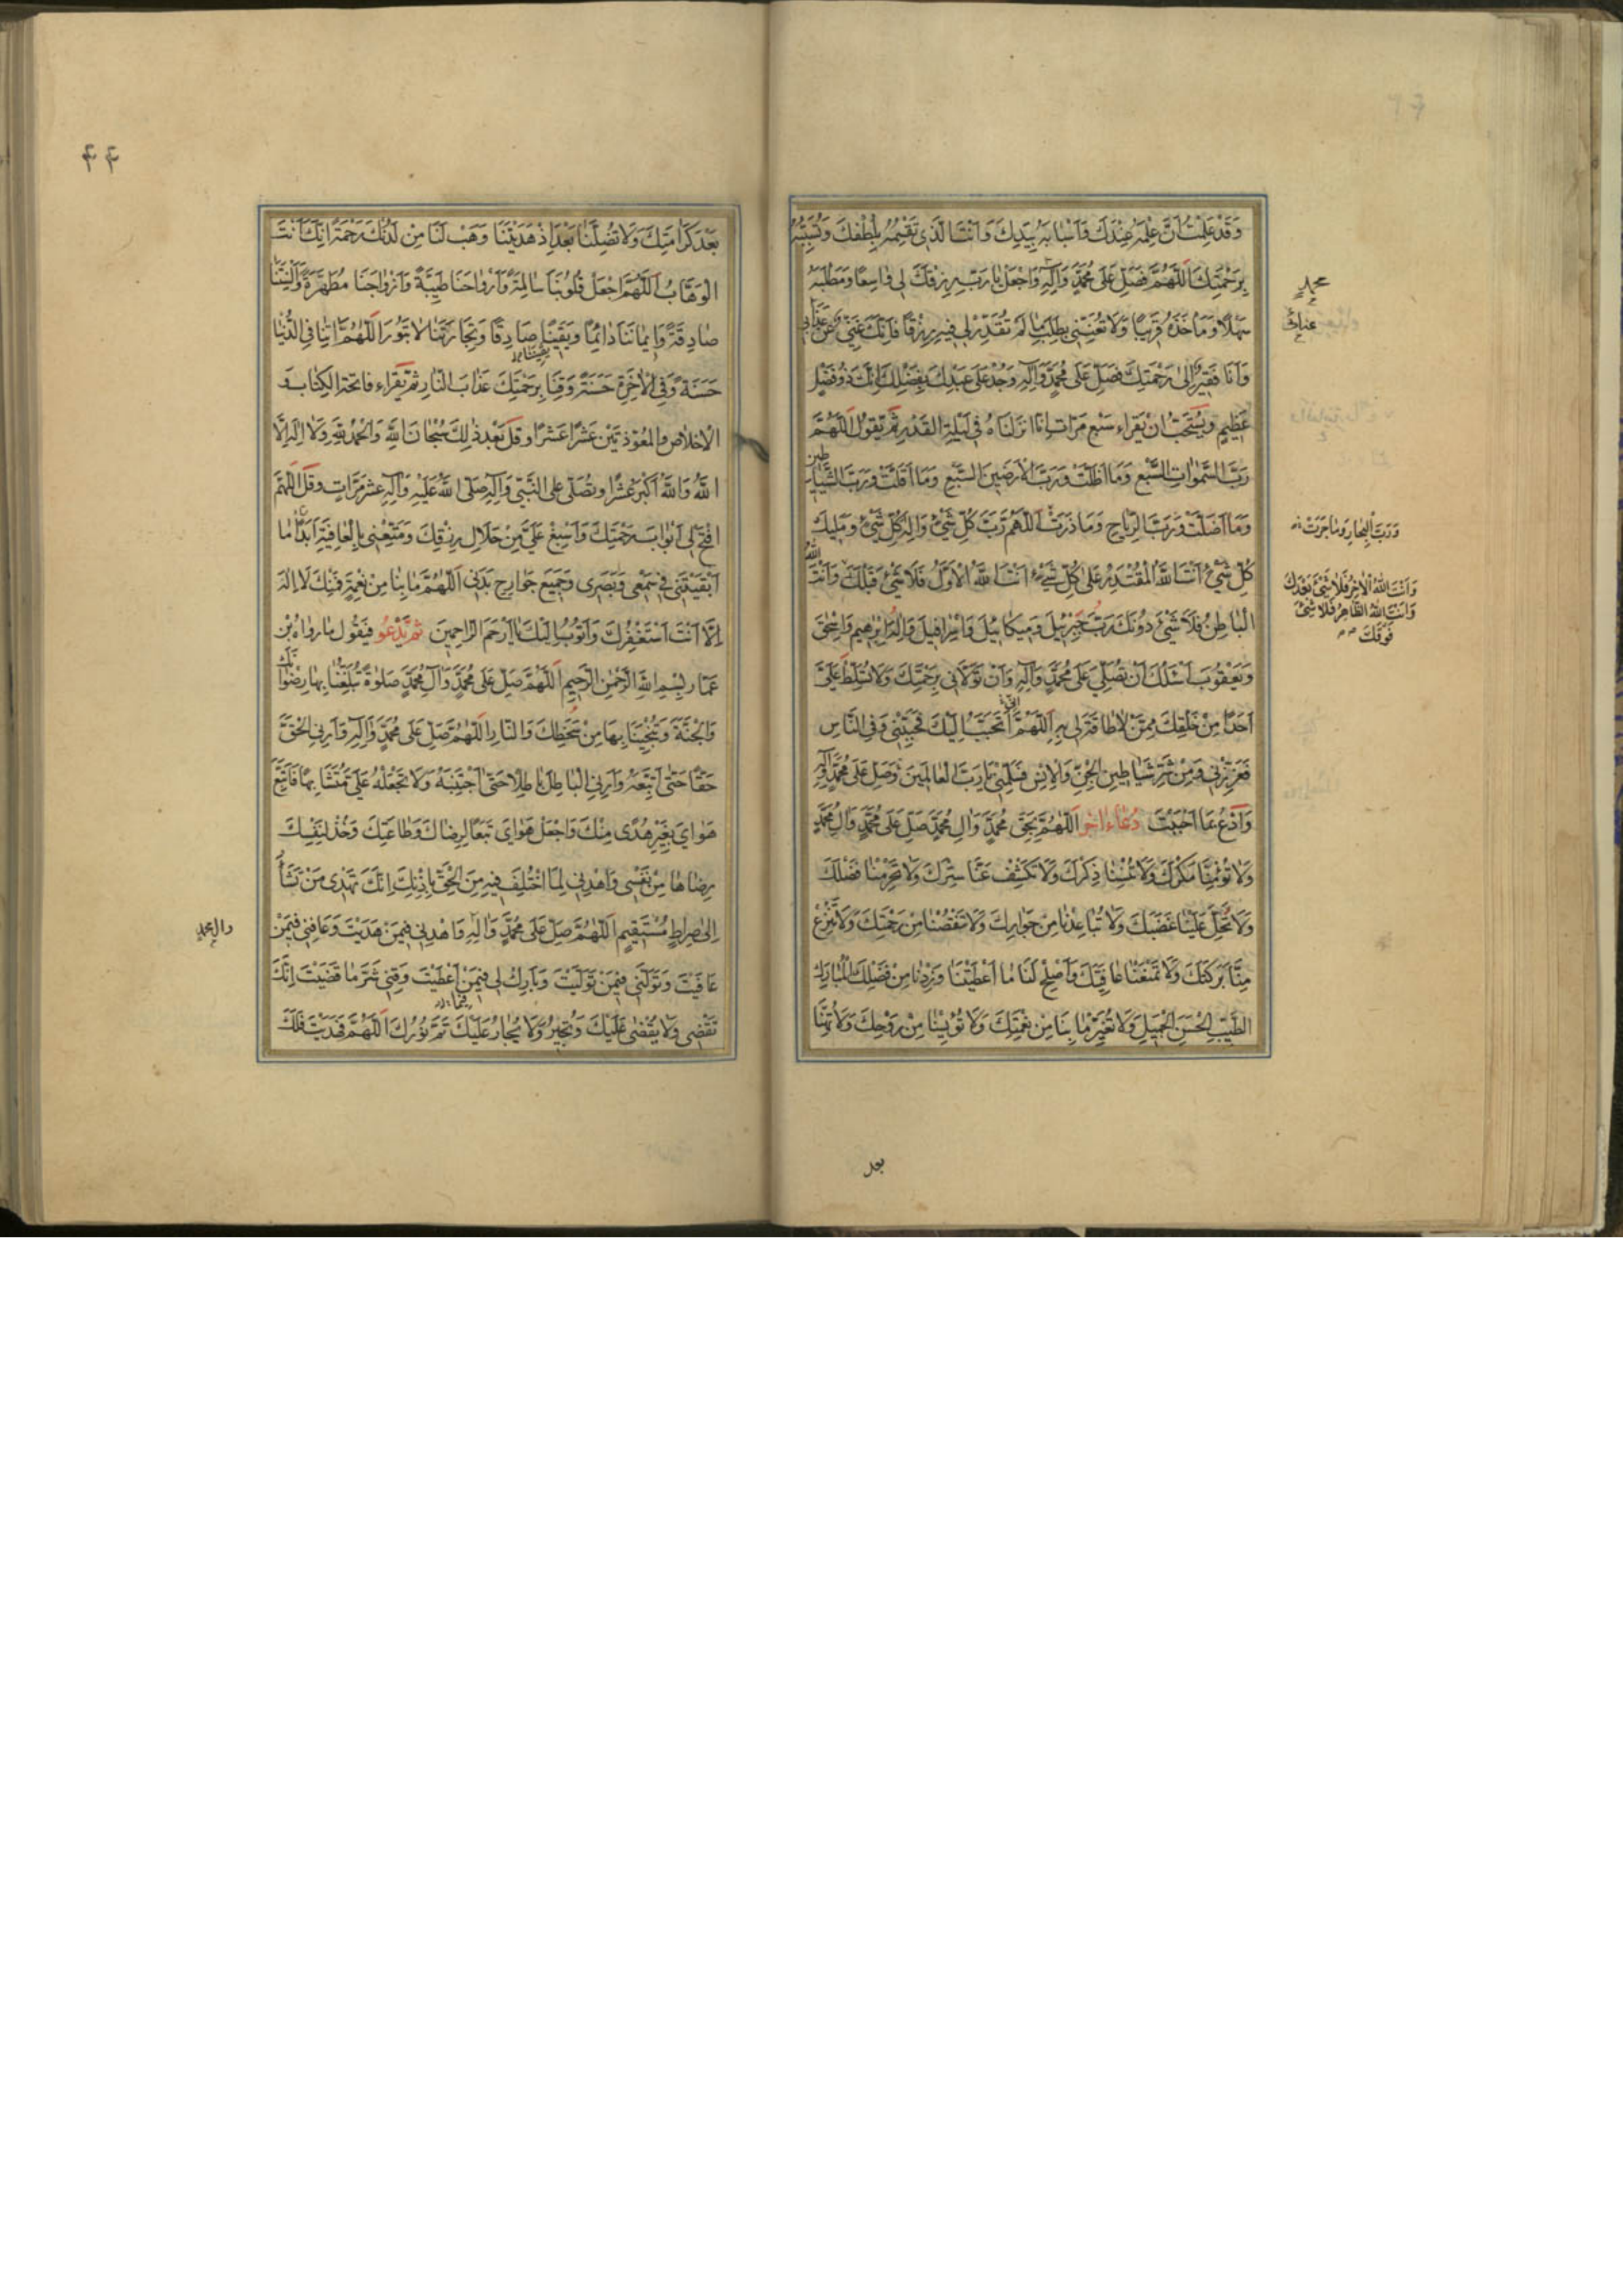 وَقَدْ عَلِمْتُ اَنَّ عِلْمَهُ عِنْدَكَ وَاَسْبَابَهُ بِيَدِكَ وَاَنْتَ الَّذِي تَقْسِمُهُ بِلُطْفِكَ وَتُسَبِّبُهُ
بِرَحْمَتِكَ اَللّهُمَّ فَصَلِّ عَلى مُحَمَّدٍ وَآلِهِ وَاجْعَلْ يَا رَبِّ رِزْقَكَ لِي وَاسِعًا وَمَطْلَبَهُ
سَهْلًا وَمَأْخَذَهُ قَرِيبًا وَلَا تُعَنِّنِي بِطَلَبِ مَا لَمْ تُقَدِّرْ لِي فِيهِ رِزْقًا فَاِنَّكَ غَنِيٌّ عَنْ عَذَابِي
وَاَنَا فَقِيرٌ اِلى رَحْمَتِكَ فَصَلِّ عَلى مُحَمَّدٍ وَآلِهِ وَجُدْ عَلى عَبْدِكَ بِفَضْلِكَ اِنَّكَ ذُو فَضْلٍ
عَظِيمٍ وَيُسْتَحَبُّ اَنْ يَقْرَاءَ سَبْعَ مَرَّاتٍ اِنَّا اَنْزَلْنَاهُ فِي لَيْلَةِ الْقَدْرِ ثُمَّ يَقُولُ اَللّهُمَّ
رَبَّ السَّمٰوَاتِ السَّبْعِ وَمَا اَظَلَّتْ وَرَبَّ الْاَرَضِينَ السَّبْعِ وَمَا اَقَلَّتْ وَرَبَّ الشَّيَاطِينِ
وَمَا اَضَلَّتْ وَرَبَّ الرِّيَاحِ وَمَا ذَرَتْ اَللّهُمَّ رَبَّ كُلِّ شَيْءٍ وَاِلهَ كُلِّ شَيْءٍ وَمَلِيكَ
كُلِّ شَيْءٍ اَنْتَ اللّهُ الْمُقْتَدِرُ عَلى كُلِّ شَيْءٍ اَنْتَ اللّهُ الْاَوَّلُ فَلَا شَيْءَ قَبْلَكَ وَاَنْتَ اللّهُ
الْبَاطِنُ فَلَا شَيْءَ دُونَكَ رَبَّ جَبْرَئِيلَ وَمِيكَائِيلَ وَاِسْرَافِيلَ وَاِلهَ اِبْرٰهِيمَ وَاِسْحٰقَ
وَيَعْقُوبَ اَسْئَلُكَ اَنْ تُصَلِّيَ عَلى مُحَمَّدٍ وَآلِهِ وَاَنْ تَوَلَّانِي بِرَحْمَتِكَ وَلَا تُسَلِّطْ عَلَيَّ
اَحَدًا مِنْ خَلْقِكَ مِمَّنْ لَا طَاقَةَ لِي بِهِ اَللّهُمَّ اِنِّي اَتَحَبَّبُ اِلَيْكَ فَحَبِّبْنِي وَفِي النَّاسِ
فَعَزِّزْنِي وَمِنْ شَرِّ شَيَاطِينِ الْجِنِّ وَالْاِنْسِ فَسَلِّمْنِي يَا رَبَّ الْعَالَمِينَ وَصَلِّ عَلى مُحَمَّدٍ وَآلِهِ
وَادْعُ بِمَا اَحْبَبْتَ دُعَاء اخر اَللّهُمَّ بِحَقِّ مُحَمَّدٍ وَآلِ مُحَمَّدٍ صَلِّ عَلى مُحَمَّدٍ وَآلِ مُحَمَّدٍ
وَلَا تُؤْمِنَّا مَكْرَكَ وَلَا تُنْسِنَا ذِكْرَكَ وَلَا تَكْشِفْ عَنَّا سِتْرَكَ وَلَا تَحْرِمْنَا فَضْلَكَ
وَلَا تُحِلَّ عَلَيْنَا غَضَبَكَ وَلَا تُبَاعِدْنَا مِنْ جِوَارِكَ وَلَا تَنْقُصْنَا مِنْ رَحْمَتِكَ وَلَا تَنْزِعْ
مِنَّا بَرَكَتَكَ وَلَا تَمْنَعْنَا عَافِيَتَكَ وَاَصْلِحْ لَنَا مَا اَعْطَيْتَنَا وَزِدْنَا مِنْ فَضْلِكَ الْمُبَارَكِ
الطَّيِّبِ الْحَسَنِ الْجَمِيلِ وَلَا تُغَيِّرْ مَا بِنَا مِنْ نِعْمَتِكَ وَلَا تُؤْيِسْنَا مِنْ رَوْحِكَ وَلَا تُهِنَّا
محمدٍ
عنائي
وَرَبَّ الْبِحَارِ وَمَا جَرَتْ
وَاَنْتَ اللّهُ الْآخِرُ فَلَا شَيْءَ بَعْدَكَ
وَاَنْتَ اللّهُ الظَّاهِرُ فَلَا شَيْءَ
فَوْقَكَ
بعد
۴۴
بَعْدَ كَرَامَتِكَ وَلَا تُضِلَّنَا بَعْدَ اِذْ هَدَيْتَنَا وَهَبْ لَنَا مِنْ لَدُنْكَ رَحْمَةً اِنَّكَ اَنْتَ
الْوَهَّابُ اَللّهُمَّ اجْعَلْ قُلُوبَنَا سَالِمَةً وَاَرْوَاحَنَا طَيِّبَةً وَاَزْوَاجَنَا مُطَهَّرَةً وَاَلْسِنَتَنَا
صَادِقَةً وَاِيمَانَنَا دَائِمًا وَيَقِينَنَا صَادِقًا وَتِجَارَتَنَا لَا تَبُورُ اَللّهُمَّ اتِنَا فِي الدُّنْيَا
حَسَنَةً وَفِي الْاخِرَةِ حَسَنَةً وَقِنَا بِرَحْمَتِكَ عَذَابَ النَّارِ ثُمَّ يَقْرَاءُ فَاتِحَةَ الْكِتَابِ وَ
الْاِخْلَاصَ وَالْمُعَوِّذَتَيْنِ عَشْرًا عَشْرًا وَقُلْ بَعْدَ ذٰلِكَ سُبْحَانَ اللّهِ وَالْحَمْدُ لِلّهِ وَلَا اِلهَ اِلَّا
اللّهُ وَاللّهُ اَكْبَرُ عَشْرًا وَتُصَلِّي عَلَى النَّبِيِّ وَآلِهِ صَلَّى اللّهُ عَلَيْهِ وَآلِهِ عَشْرَ مَرَّاتٍ وَقُلْ اَللّهُمَّ
افْتَحْ لِي اَبْوَابَ رَحْمَتِكَ وَاَسْبِغْ عَلَيَّ مِنْ حَلَالِ رِزْقِكَ وَمَتِّعْنِي بِالْعَافِيَةِ اَبَدًا مَا
اَبْقَيْتَنِي فِي سَمْعِي وَبَصَرِي وَجَمِيعِ جَوَارِحِ بَدَنِي اَللّهُمَّ مَا بِنَا مِنْ نِعْمَةٍ فَمِنْكَ لَا اِلهَ
اِلَّا اَنْتَ اَسْتَغْفِرُكَ وَاَتُوبُ اِلَيْكَ يَا اَرْحَمَ الرَّاحِمِينَ ثُمَّ يَدْعُو فَيَقُولُ مَا رَوَاهُ بْن
عَمَّار بِسْمِ اللّهِ الرَّحْمٰنِ الرَّحِيمِ اَللّهُمَّ صَلِّ عَلى مُحَمَّدٍ وَآلِ مُحَمَّدٍ صَلٰوةً تُبَلِّغُنَا بِهَا رِضْوَانَكَ
وَالْجَنَّةَ وَتُنْجِينَا بِهَا مِنْ سَخَطِكَ وَالنَّارِ اَللّهُمَّ صَلِّ عَلى مُحَمَّدٍ وَآلِهِ وَاَرِنِي الْحَقَّ
حَقًّا حَتّى اَتَّبِعَهُ وَاَرِنِي الْبَاطِلَ بَاطِلًا حَتّى اَجْتَنِبَهُ وَلَا تَجْعَلْهُ عَلَيَّ مُتَشَابِهًا فَاَتَّبِعَ
هَوَايَ بِغَيْرِ هُدًى مِنْكَ وَاجْعَلْ هَوَايَ تَبَعًا لِرِضَاكَ وَطَاعَتِكَ وَخُذْ لِنَفْسِكَ
رِضَاهَا مِنْ نَفْسِي وَاهْدِنِي لِمَا اخْتُلِفَ فِيهِ مِنَ الْحَقِّ بِاِذْنِكَ اِنَّكَ تَهْدِي مَنْ تَشَاءُ
اِلى صِرَاطٍ مُسْتَقِيمٍ اَللّهُمَّ صَلِّ عَلى مُحَمَّدٍ وَآلِهِ وَاهْدِنِي فِيمَنْ هَدَيْتَ وَعَافِنِي فِيمَنْ
عَافَيْتَ وَتَوَلَّنِي فِيمَنْ تَوَلَّيْتَ وَبَارِكْ لِي فِيمَنْ اَعْطَيْتَ وَقِنِي شَرَّ مَا قَضَيْتَ اِنَّكَ
تَقْضِي وَلَا يُقْضى عَلَيْكَ وَتُجِيرُ وَلَا يُجَارُ عَلَيْكَ تَمَّ نُورُكَ اَللّهُمَّ فَهَدَيْتَ فَلَكَ
وال محمدٍ